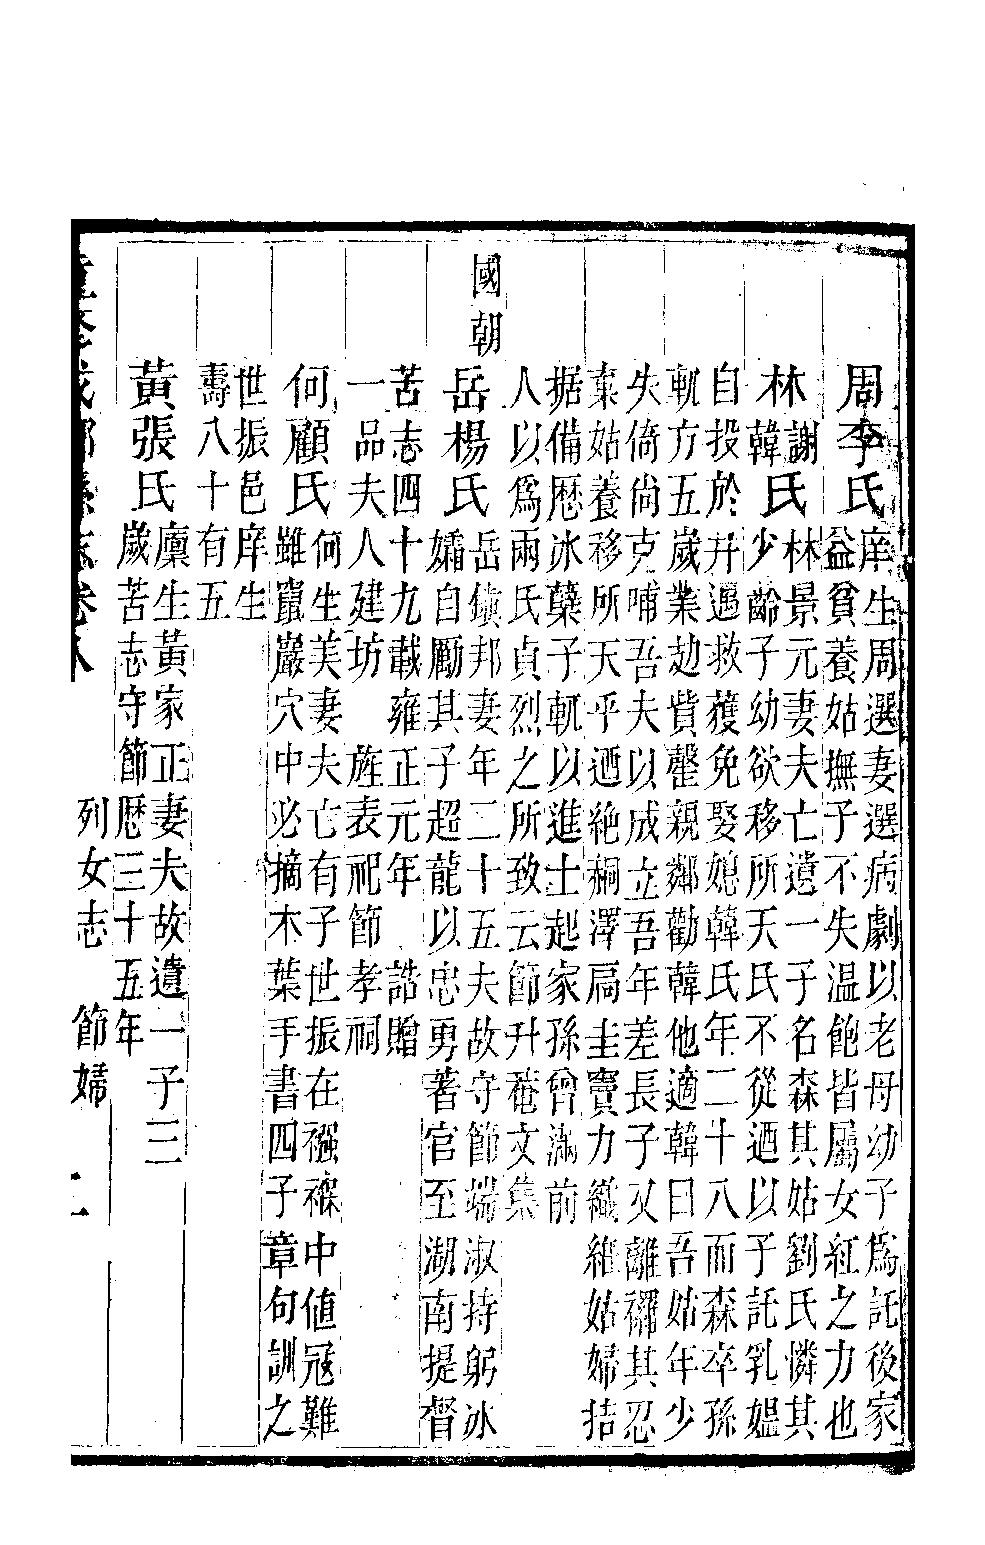 周李氏庠生周選妻選病劇以老母幼子爲託後家
益貧養姑撫子不失温飽皆屬女紅之力也
林謝氏林景元妻夫亡遺一子名森其姑劉氏憐其
林韓氏少齡子幼欲移所天氏不從迺以子託乳媼
自投於井遇救獲免娶媳韓氏年二十八而森卒孫
軏方五歲業迨貲罄親鄰勸韓他適韓曰吾姑年少
失倚尚克哺吾夫以成立吾年差長子又離襁其忍
棄姑養移所天乎迺絶桐澤扃圭竇力織維姑婦拮
据備歷冰蘖子軏以進士起家孫曾滿前
人以爲兩氏貞烈之所致云節升菴文集
國朝
岳楊氏岳鎮邦妻年二十五夫故守節端淑持躬冰
孀自勵其子超龍以忠勇著官至湖南提督
苦志四十九載雍正元年 誥贈
一品夫人建坊 旌表祀節孝祠
何顧氏何生美妻夫亡有子世振在襁褓中値冦難
雖竄巖穴中必摘木葉手書四子章句訓之
世振邑庠生
壽八十有五
黃張氏廩生黃家正妻夫故遺一子三
歲苦志守節歷三十五年
重修成都縣志卷八 列女志 節婦 二